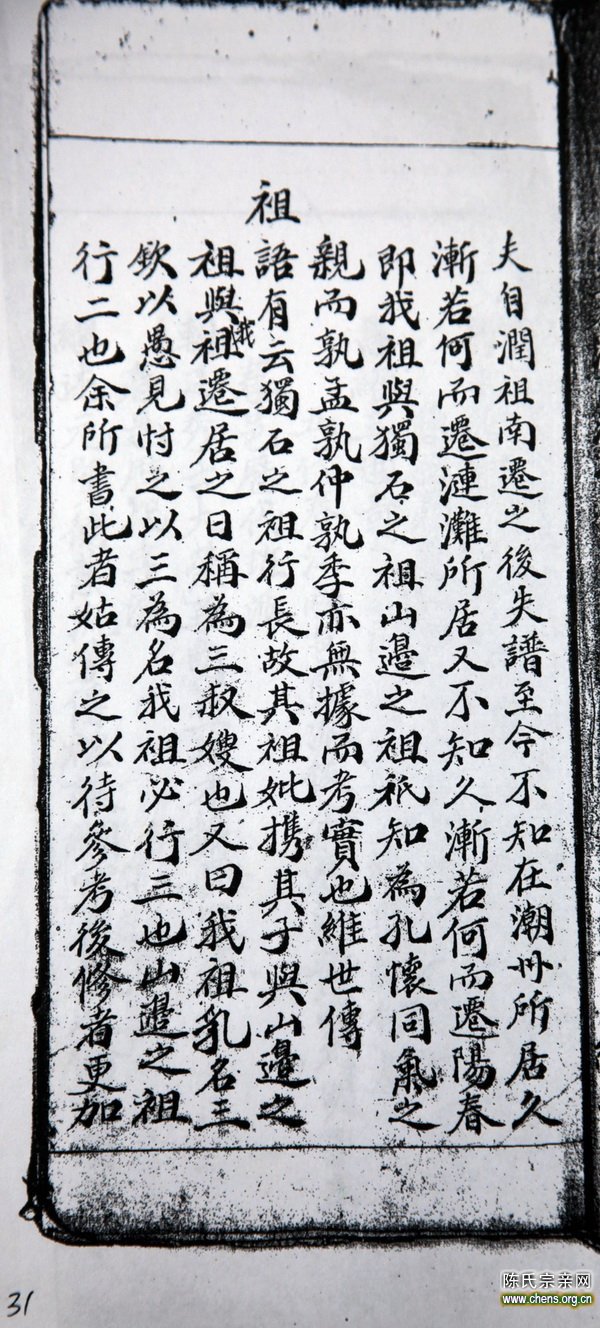 夫自潤祖南遷之後失譜至今不知在潮州所居久
漸若何而遷漣灘所居又不知久漸若何而遷陽春
即我祖與獨石之祖山邊之祖祇知為孔懷同氣之
親而孰孟孰仲孰季亦無據而考實也維世傳
祖語有云獨石之祖行長故其祖妣携其子與山邊之
祖與我祖遷居之日稱為三叔嫂也又曰我祖乳名三
欽以愚見忖之以三為名我祖必行三也山邊之祖
行二也余所書此者姑傳之以待參考後修者更加
31
陈氏宗亲网
www.chens.org.cn